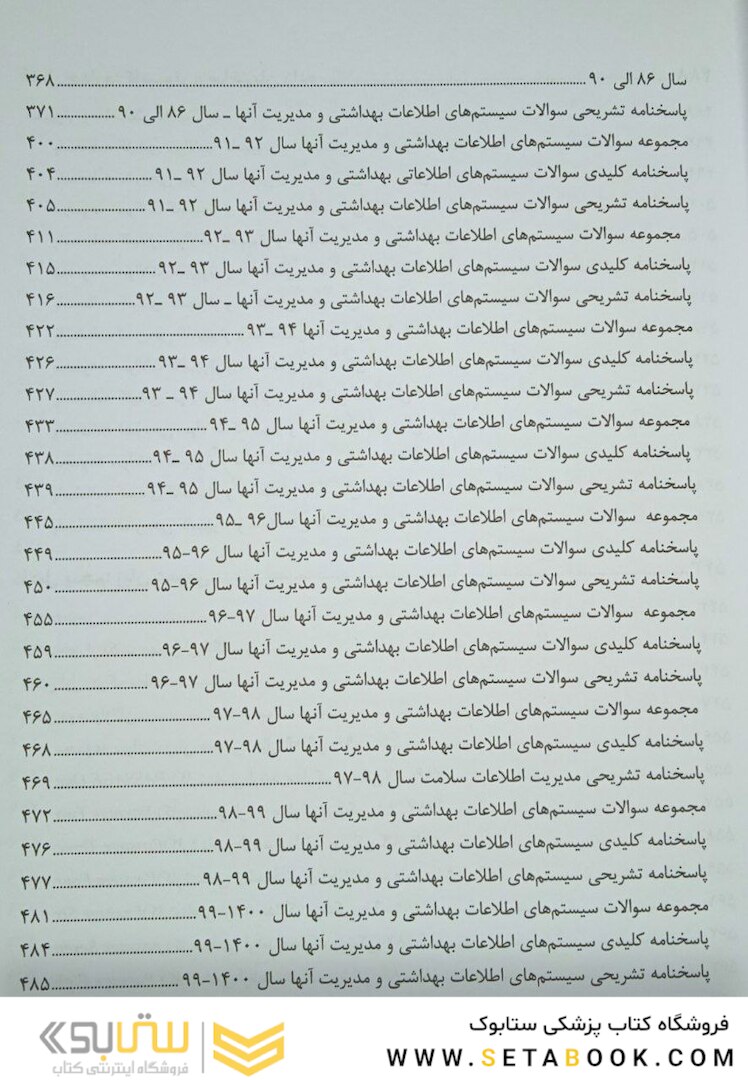 سال ۸۶ الی ۹۰ ................ ۳۶۸
پاسخنامه تشریحی سوالات سیستم‌های اطلاعات بهداشتی و مدیریت آنها ـ سال ۸۶ الی ۹۰ ................ ۳۷۱
مجموعه سوالات سیستم‌های اطلاعات بهداشتی و مدیریت آنها سال ۹۲ ـ۹۱ ................ ۴۰۰
پاسخنامه کلیدی سوالات سیستم‌های اطلاعاتی بهداشتی و مدیریت آنها سال ۹۲ ـ۹۱ ................ ۴۰۴
پاسخنامه تشریحی سوالات سیستم‌های اطلاعات بهداشتی و مدیریت آنها سال ۹۲ ـ۹۱ ................ ۴۰۵
مجموعه سوالات سیستم‌های اطلاعات بهداشتی و مدیریت آنها سال ۹۳ ـ۹۲ ................ ۴۱۱
پاسخنامه کلیدی سوالات سیستم‌های اطلاعات بهداشتی و مدیریت آنها سال ۹۳ ـ۹۲ ................ ۴۱۵
پاسخنامه تشریحی سوالات سیستم‌های اطلاعات بهداشتی و مدیریت آنها ـ سال ۹۳ ـ۹۲ ................ ۴۱۶
مجموعه سوالات سیستم‌های اطلاعات بهداشتی و مدیریت آنها ۹۴ ـ۹۳ ................ ۴۲۲
پاسخنامه کلیدی سوالات سیستم‌های اطلاعات بهداشتی و مدیریت آنها سال ۹۴ ـ۹۳ ................ ۴۲۶
پاسخنامه تشریحی سوالات سیستم‌های اطلاعات بهداشتی و مدیریت آنها سال ۹۴ ـ ۹۳ ................ ۴۲۷
مجموعه سوالات سیستم‌های اطلاعات بهداشتی و مدیریت آنها سال ۹۵ ـ۹۴ ................ ۴۳۳
پاسخنامه کلیدی سوالات سیستم‌های اطلاعات بهداشتی و مدیریت آنها سال ۹۵ ـ۹۴ ................ ۴۳۸
پاسخنامه تشریحی سوالات سیستم‌های اطلاعات بهداشتی و مدیریت آنها سال ۹۵ ـ۹۴ ................ ۴۳۹
مجموعه سوالات سیستم‌های اطلاعات بهداشتی و مدیریت آنها سال۹۶ ـ۹۵ ................ ۴۴۵
پاسخنامه کلیدی سوالات سیستم‌های اطلاعات بهداشتی و مدیریت آنها سال ۹۶-۹۵ ................ ۴۴۹
پاسخنامه تشریحی سوالات سیستم‌های اطلاعات بهداشتی و مدیریت آنها سال ۹۶-۹۵ ................ ۴۵۰
مجموعه سوالات سیستم‌های اطلاعات بهداشتی و مدیریت آنها سال ۹۷-۹۶ ................ ۴۵۵
پاسخنامه کلیدی سوالات سیستم‌های اطلاعات بهداشتی و مدیریت آنها سال ۹۷-۹۶ ................ ۴۵۹
پاسخنامه تشریحی سوالات سیستم‌های اطلاعات بهداشتی و مدیریت آنها سال ۹۷-۹۶ ................ ۴۶۰
مجموعه سوالات سیستم‌های اطلاعات بهداشتی و مدیریت آنها سال ۹۸-۹۷ ................ ۴۶۵
پاسخنامه کلیدی سیستم‌های اطلاعات بهداشتی و مدیریت آنها سال ۹۸-۹۷ ................ ۴۶۸
پاسخنامه تشریحی مدیریت اطلاعات سلامت سال ۹۸-۹۷ ................ ۴۶۹
مجموعه سوالات سیستم‌های اطلاعات بهداشتی و مدیریت آنها سال ۹۹-۹۸ ................ ۴۷۲
پاسخنامه کلیدی سیستم‌های اطلاعات بهداشتی و مدیریت آنها سال ۹۹-۹۸ ................ ۴۷۶
پاسخنامه تشریحی سیستم‌های اطلاعات بهداشتی و مدیریت آنها سال ۹۹-۹۸ ................ ۴۷۷
مجموعه سوالات سیستم‌های اطلاعات بهداشتی و مدیریت آنها سال ۱۴۰۰-۹۹ ................ ۴۸۱
پاسخنامه کلیدی سیستم‌های اطلاعات بهداشتی و مدیریت آنها سال ۱۴۰۰-۹۹ ................ ۴۸۴
پاسخنامه تشریحی سیستم‌های اطلاعات بهداشتی و مدیریت آنها سال ۱۴۰۰-۹۹ ................ ۴۸۵
فروشگاه کتاب پزشکی ستابوک
WWW.SETABOOK.COM
ستابوک
فروشگاه اینترنتی کتاب